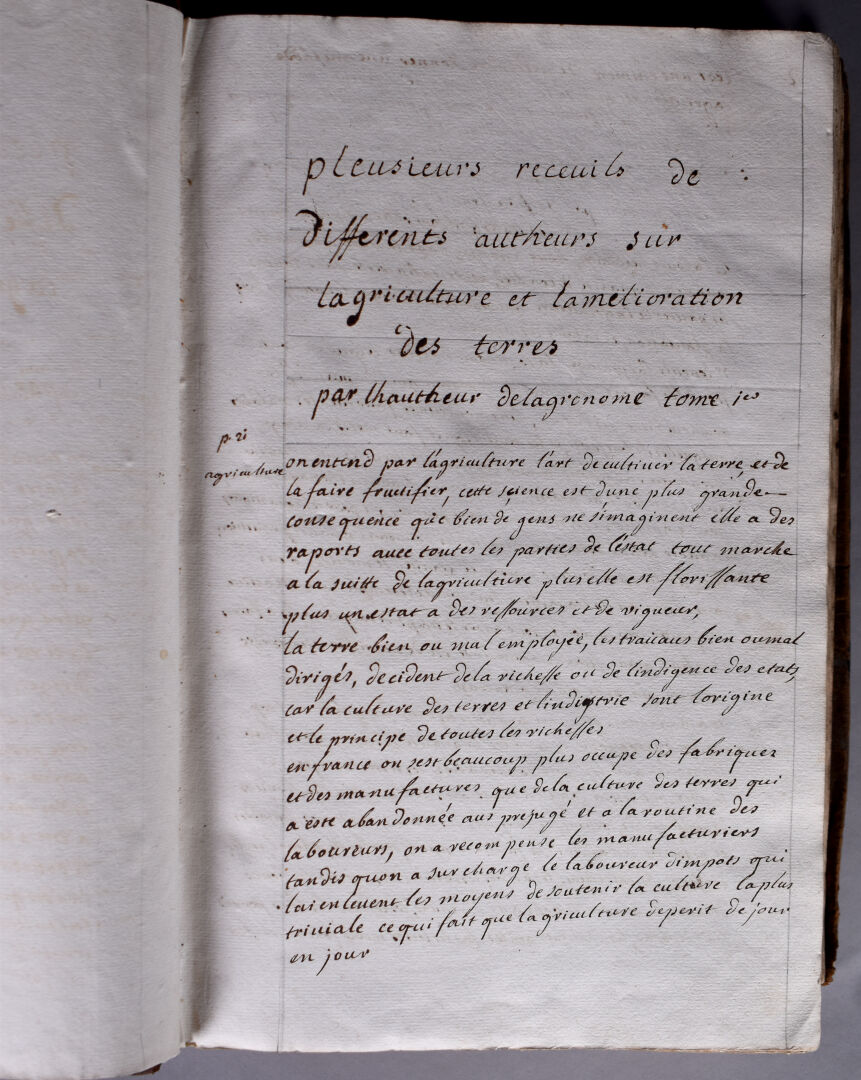 pleusieurs receuils de
differents autheurs sur
lagriculture et lamelioration
des terres
par lhautheur delagronome tome 1er
p. 21
agriculture
on entend par l'agriculture l'art de cultiver la terre, et de
la faire fructifier, cette science est d'une plus grande
consequence que bien de gens ne s'imaginent elle a des
raports avec toutes les parties de l'estat tout marche
a la suitte de lagriculture plus elle est florissante
plus un estat a des ressources et de vigueur,
la terre bien ou mal employée, les travaus bien ou mal
dirigés, decident de la richesse ou de l'indigence des etats,
car la culture des terres et lindustrie sont lorigine
et le principe de toutes les richesses
en france on sest beaucoup plus occupe des fabriques
et des manufactures que de la culture des terres qui
a este abandonnée aus prejugé et a la routine des
laboureurs, on a recompense les manufacturiers
tandis quon a surchargé le laboureur d'impots qui
lui enlevent les moyens de soutenir la culture la plus
triviale ce qui fait que lagriculture deperit de jour
en jour